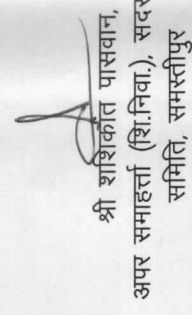 श्री शशिकांत पासवान,
अपर समाहर्त्ता (शि.निवा.), सदर
समिति, समस्तीपुर